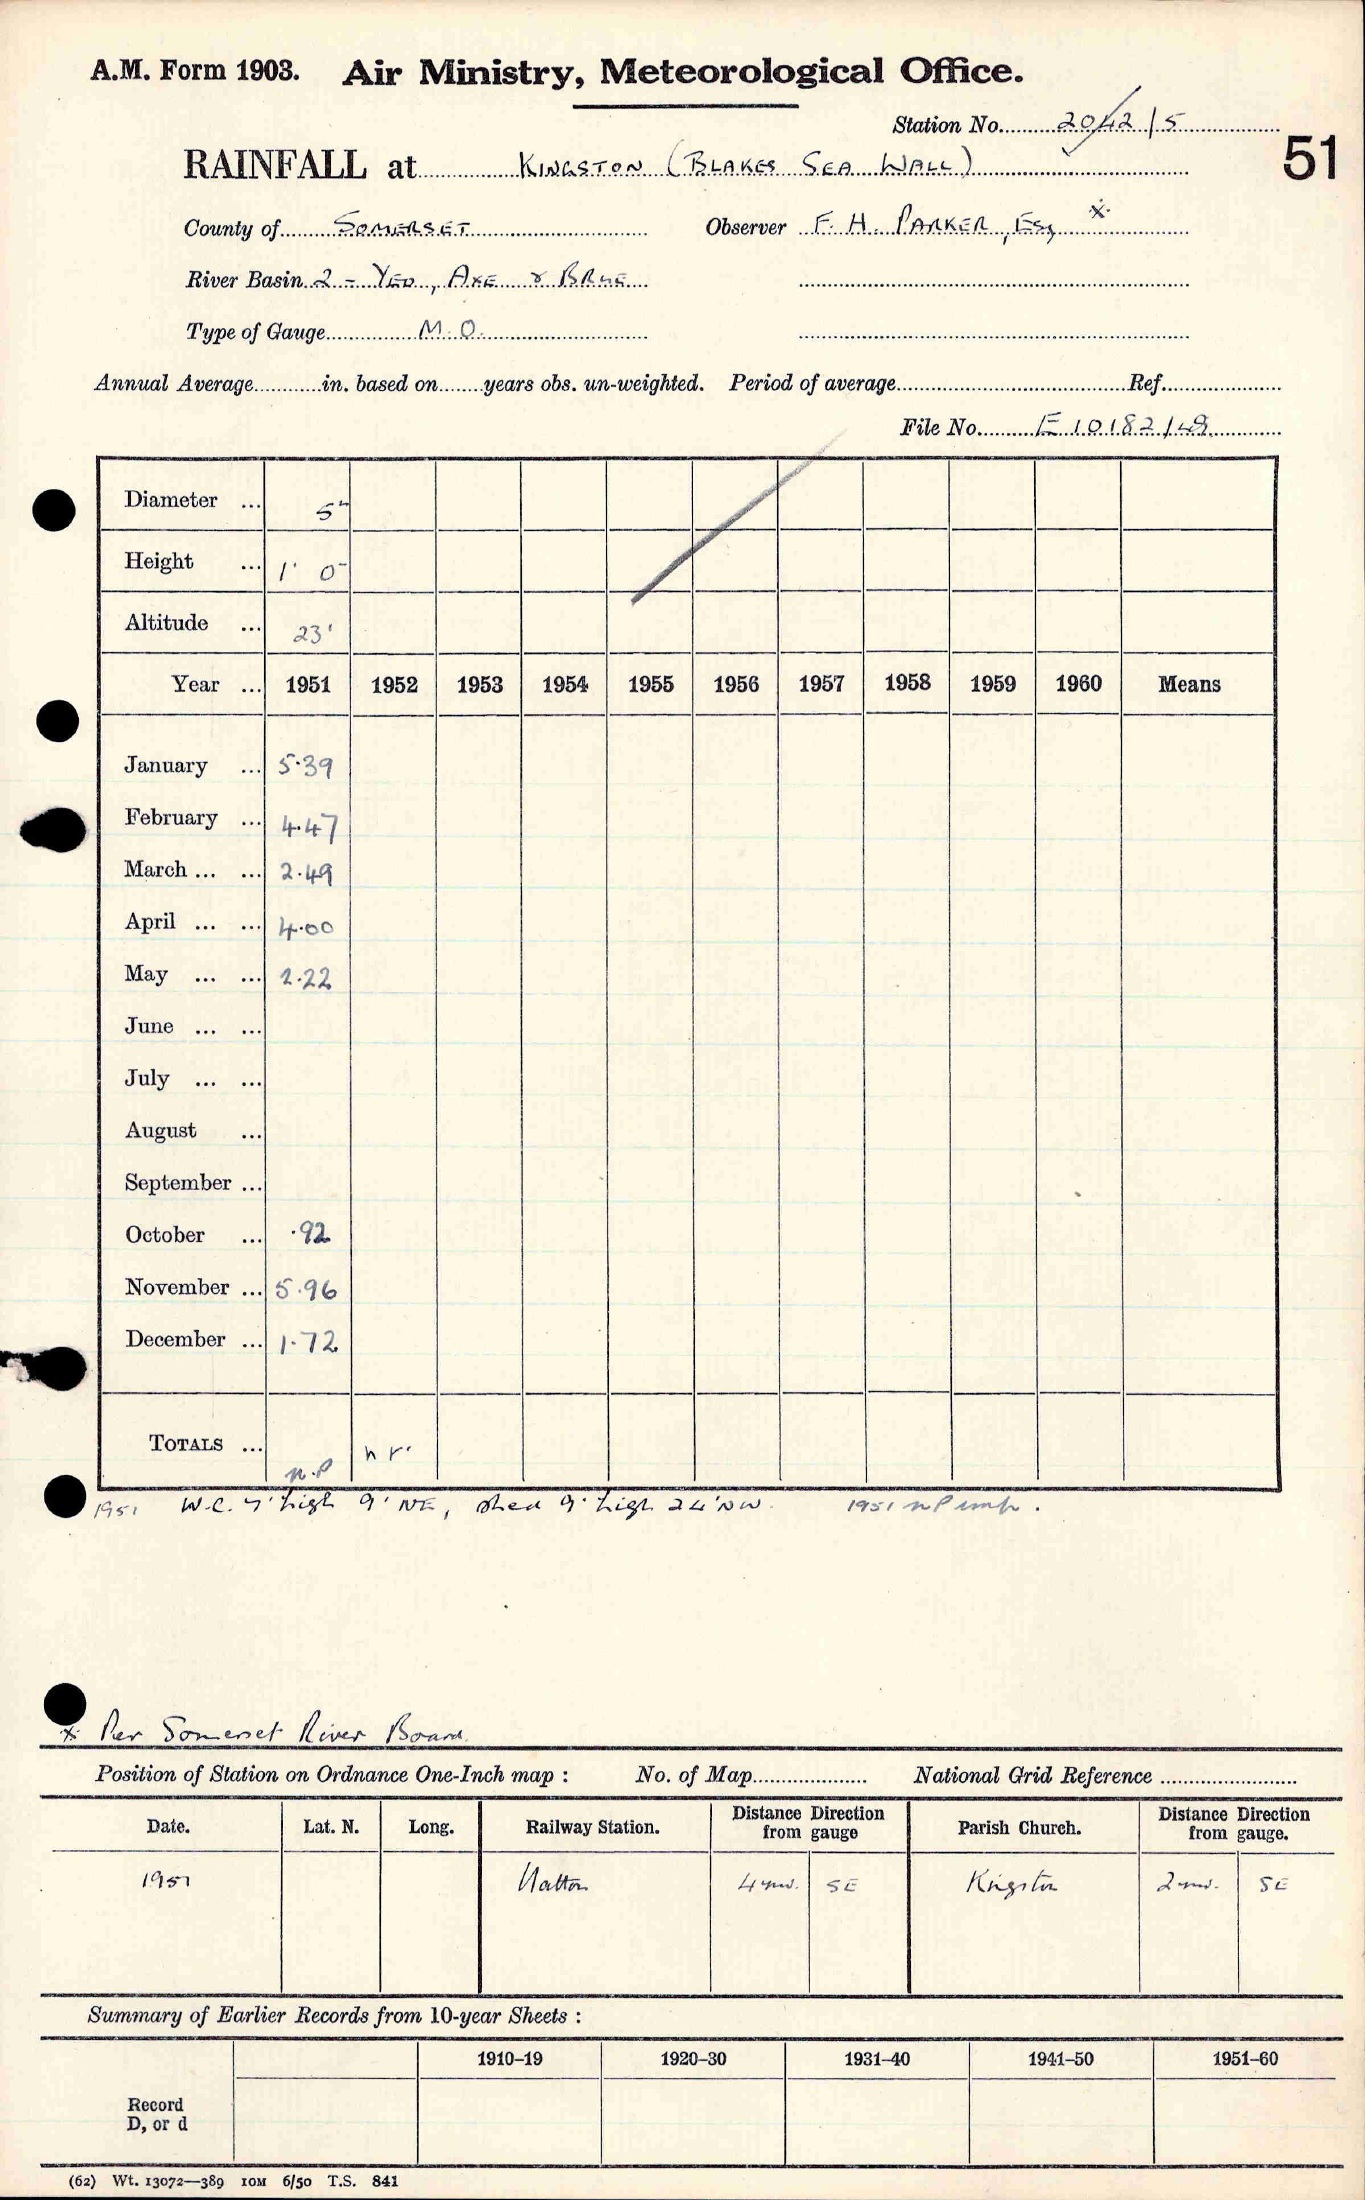 A.M. Form 1903. Air Ministry, Meteorological Office.
Station No. 2042/5
51
RAINFALL at KINGSTON (BLAKES SEA WALL)
County of SOMERSET Observer F. H. PARKER, Esq *
River Basin 2 - YEO, AXE & BRUE
Type of Gauge M.O.
Annual Average in. based on years obs. un-weighted. Period of average Ref.
File No. E 10182/49
Diameter ... 5"
Height ... 1' 0"
Altitude ... 23'
Year ... 1951 1952 1953 1954 1955 1956 1957 1958 1959 1960 Means
January ... 5.39
February ... 4.47
March ... ... 2.49
April ... ... 4.00
May ... ... 2.22
June ... ...
July ... ...
August ...
September ...
October ... .92
November ... 5.96
December ... 1.72
TOTALS ... n.P n r.
1951 W.C. 7' high 9' NE, shed 9' high 24' NW. 1951 n P
* Per Somerset River Board.
Position of Station on Ordnance One-Inch map : No. of Map National Grid Reference
Date. Lat. N. Long. Railway Station. Distance Direction from gauge Parish Church. Distance Direction from gauge.
1951 4 SE Kingston 2 SE
Summary of Earlier Records from 10-year Sheets :
1910–19 1920–30 1931–40 1941–50 1951–60
Record
D, or d
(62) Wt. 13072—389 10M 6/50 T.S. 841